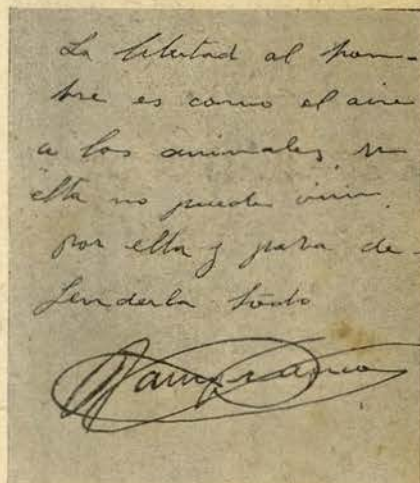 La libertad al hom-
bre es como el aire
a los animales, sin
ella no puede vivir,
por ella y para de-
fenderla todo